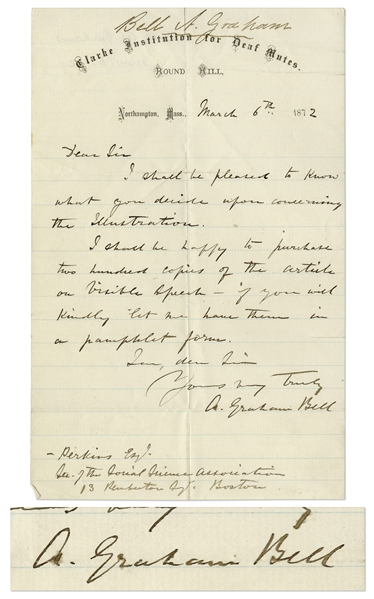 Bell A. Graham
Clarke Institution for Deaf Mutes.
Round Hill,
Northampton, Mass., March 6th 1872
Dear Sir
I shall be pleased to know
what you decide upon concerning
the Illustration.
I shall be happy to purchase
two hundred copies of the article
on Visible Speech – if you will
kindly let me have them in
a pamphlet form.
I am, dear Sir
Yours very truly
A. Graham Bell
– Perkins Esq.
Sec. of the Social Science Association
13 Pemberton Sq. Boston
A. Graham Bell